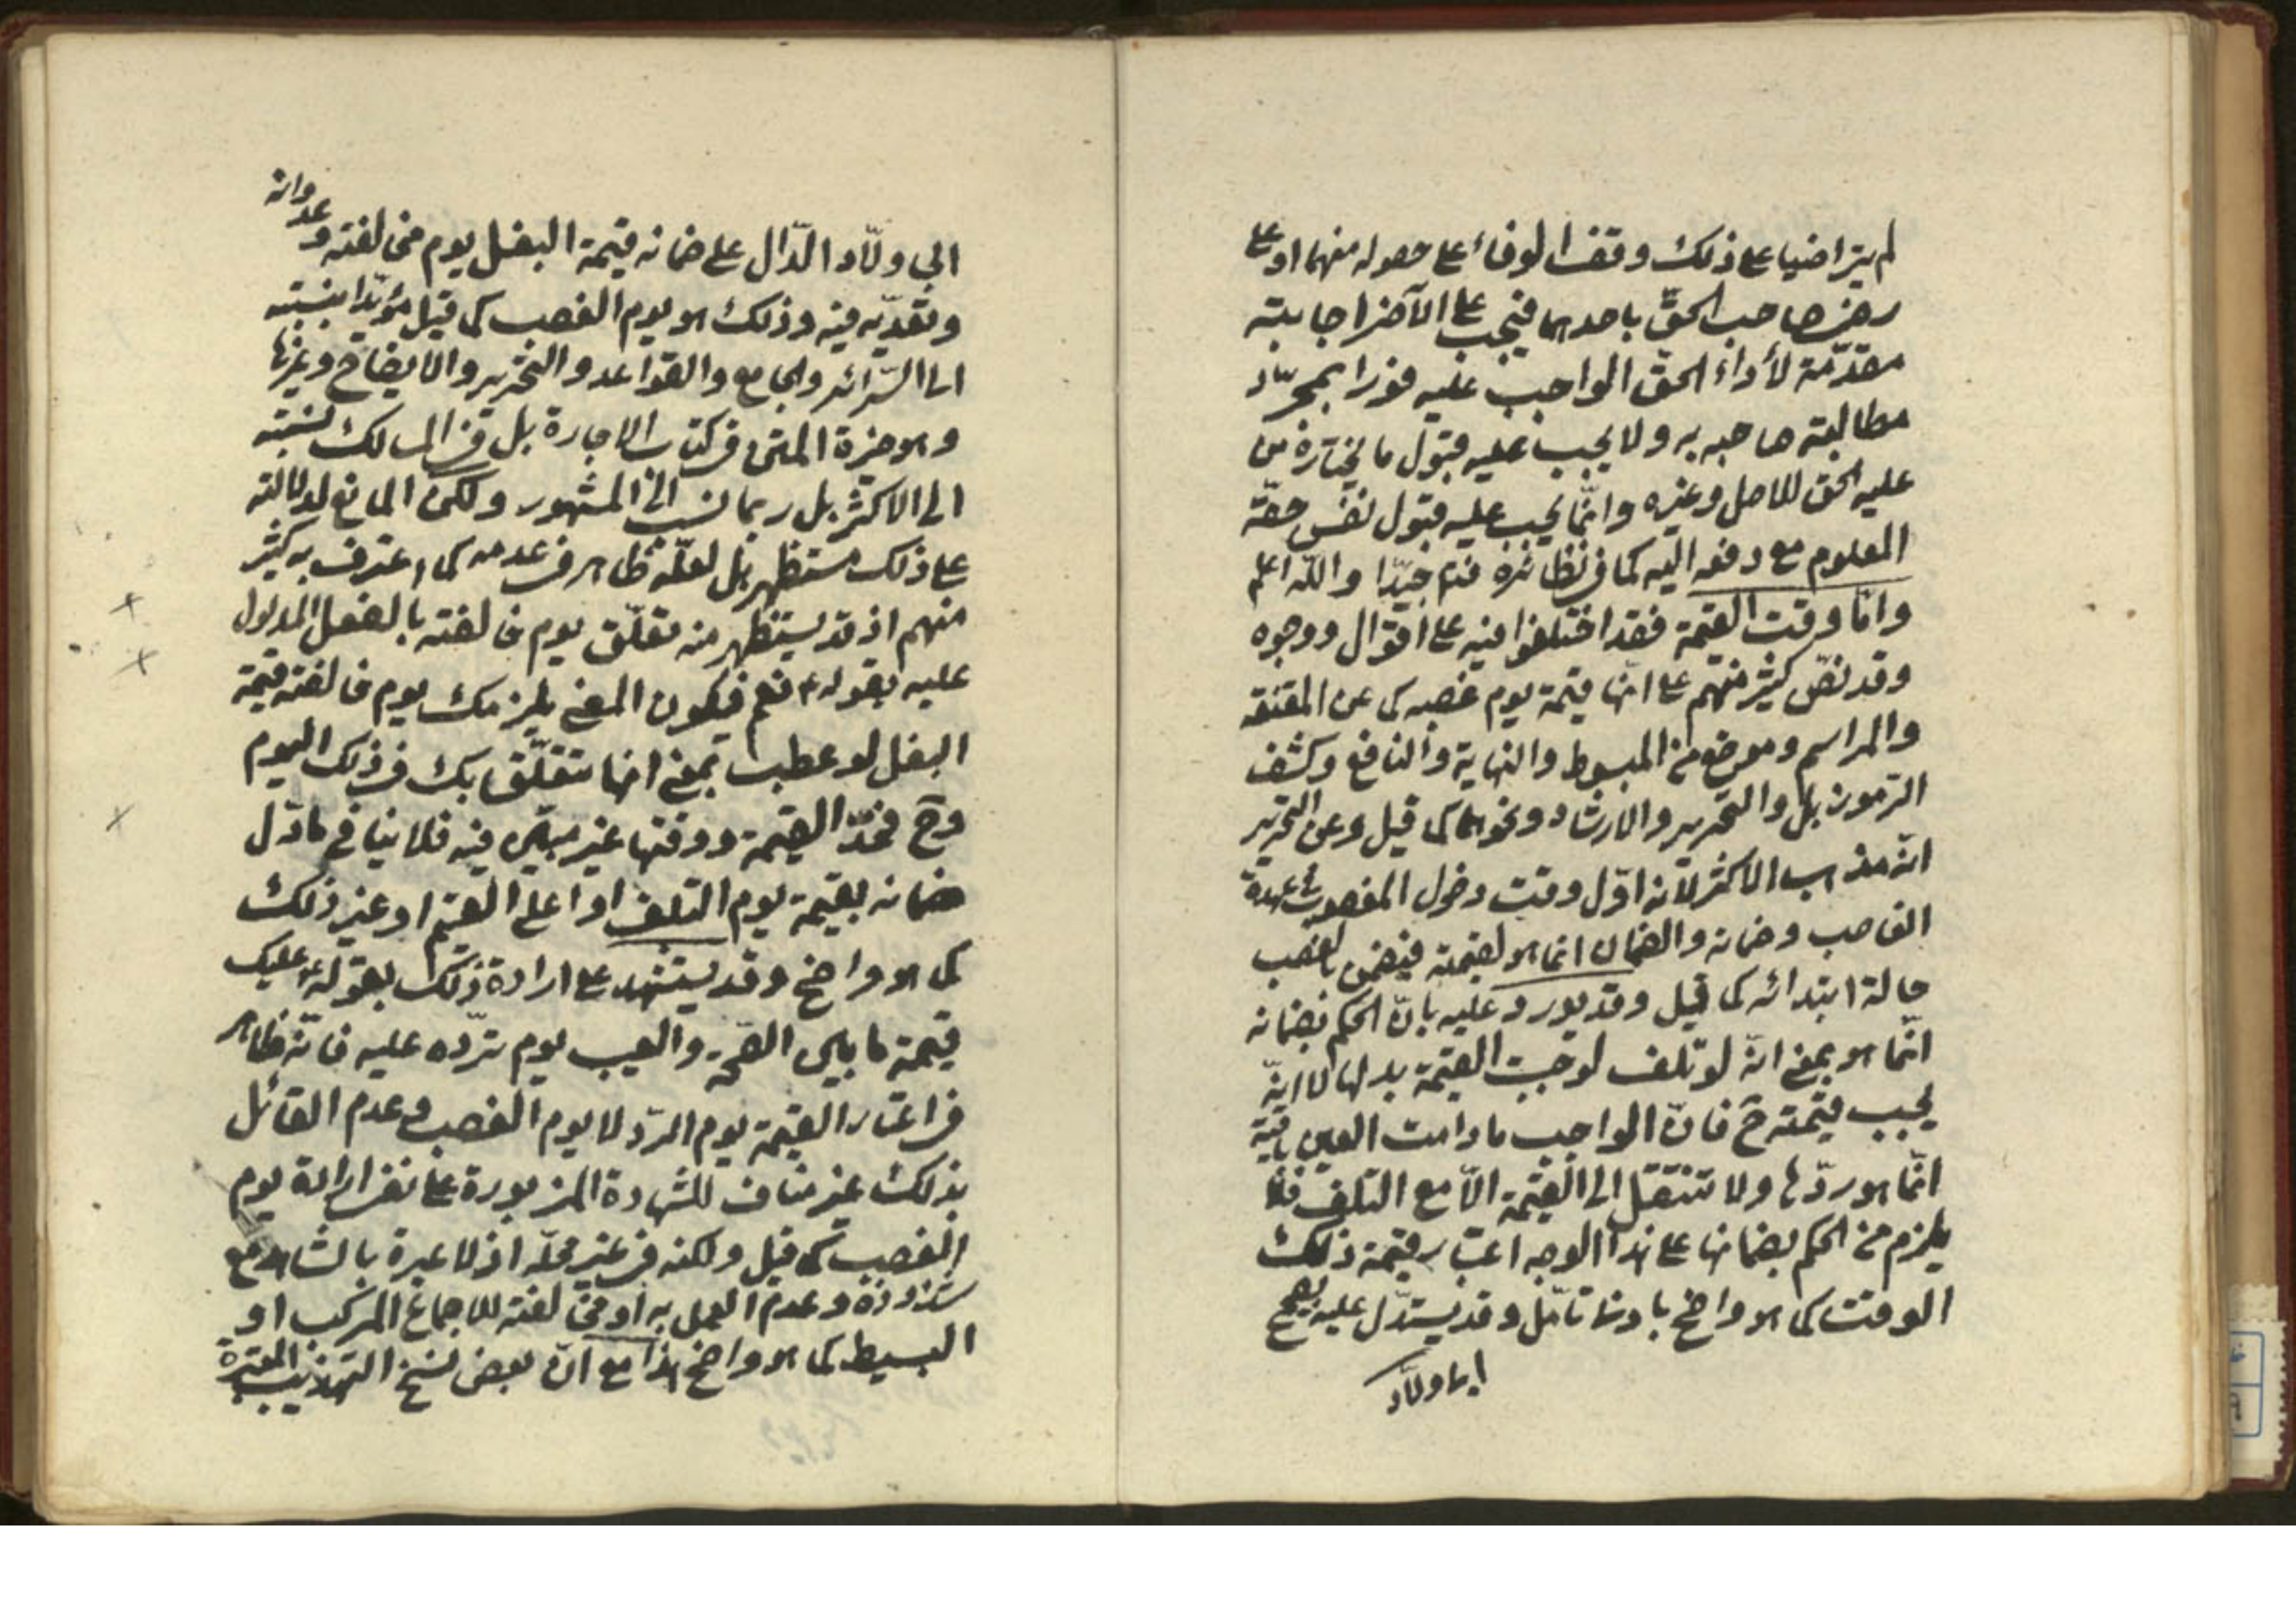 لم يتراضيا على ذلك وقف الوفاء على حصوله منهما او على
رضى صاحب الحقّ باحدهما فيجب على الآخر اجابته
مقدّمة لأداء الحقّ الواجب عليه فورا بمجرّد
مطالبته صاحبه به ولا يجب عليه قبول ما يختاره من
عليه الحق للاصل وغيره وانّما يجب عليه قبول نفس حقّه
المعلوم مع دفعه اليه كما فى نظائره فتم جيّدا واللّه اعلم
وامّا وقت القيمة فقد اختلفوا فيه على اقوال ووجوه
وقد نصّ كثير منهم على انّها قيمة يوم غصبه كما عن المقنعة
والمراسم وموضع من المبسوط والنهاية والنافع وكشف
الرموز بل والتحرير والارشاد ونحوهما كما قيل وعن التحرير
انّه مذهب الاكثر لأنه اوّل وقت دخول المغصوب فى عهدة
الغاصب وضمانه والضمان انما هو لقيمته فيضمن بالغصب
حالة ابتدائه كما قيل وقد يورد عليه بانّ الحكم بضمانه
انّما هو بمعنى انّه لو تلف لوجبت القيمة بدلها لا انّه
يجب قيمته ح فانّ الواجب ما دامت العين باقية
انّما هو ردّها ولا تنتقل الى القيمة الّا مع التلف فلا
يلزم من الحكم بضمانها على هذا الوجه اعتبار قيمة ذلك
الوقت كما هو واضح بادنى تامّل وقد يستدلّ عليه بصحيح
ابى ولّاد
ابي ولّاد الدّال على ضمانه قيمة البغل يوم مخالفته وعدوانه
وتعدّيه فيه وذلك هو يوم الغصب كما قيل مؤيّدا بنسبته
الى السّرائر والجامع والقواعد والتحرير والايضاح وغيرها
وهو خيرة المتن فى كتاب الاجارة بل فى المسالك نسبته
الى الاكثر بل ربما نسب الى المشهور ولكن المانع لدلالته
على ذلك مستظهر بل لعلّه ظاهر فى عدمه كما اعترف به كثير
منهم اذ قد يستظهر منه تعلّق يوم خالفته بالفعل المدلول
عليه بقوله ع نعم فيكون المعنى يلزمك يوم خالفته قيمة
البغل لو عطب بمعنى انها تتعلّق بك فى ذلك اليوم
وح فحدّ القيمة ووقتها غير مبيّن فيه فلا ينافي ما دلّ
ضمانه بقيمة يوم التلف او اعلى القيم او غير ذلك
كما هو واضح وقد يستشهد على ارادة ذلك بقوله ع عليك
قيمة ما بين الصّحة والعيب يوم تردّه عليه فانّه ظاهر
فى اعتبار القيمة يوم الردّ لا يوم الغصب وعدم القائل
بذلك غير مناف للشهادة المزبورة على نفى ارادة يوم
الغصب كما قيل ولكنه فى غير محلّه اذ لا عبرة بالشاهد مع
شذوذه وعدم العمل به او مخالفته للاجماع المركب او
البسيط كما هو واضح هذا مع انّ بعض نسخ التهذيب المعتبرة